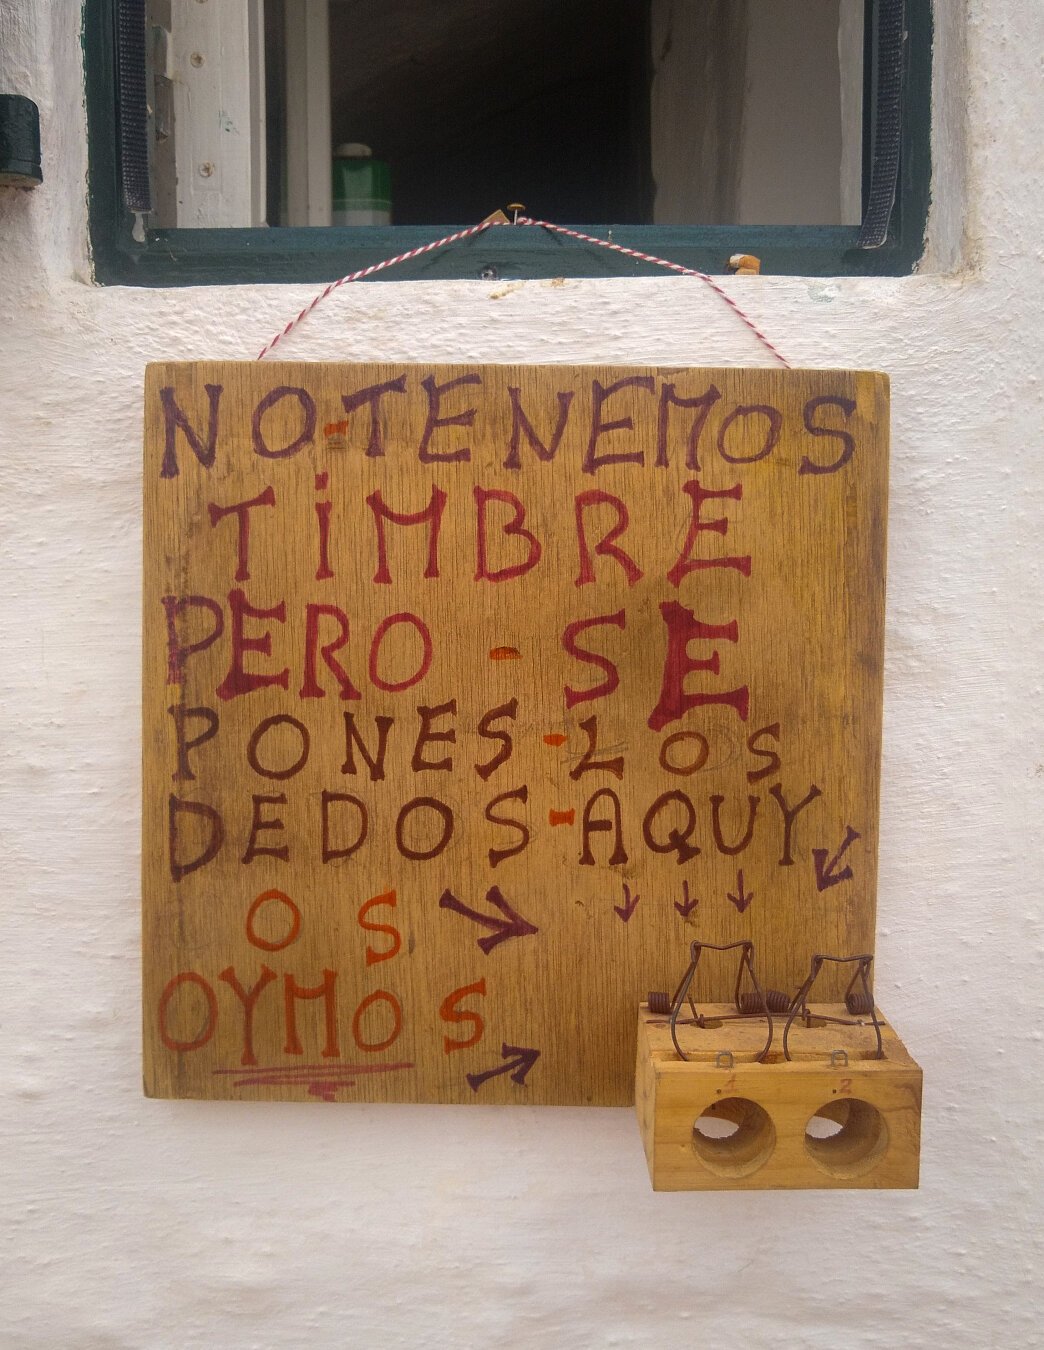 NO-TENEMOS
TiMBRE
PERO - SE
PONES-LOS
DEDOS-AQUY
OS
OYMOS
1 2